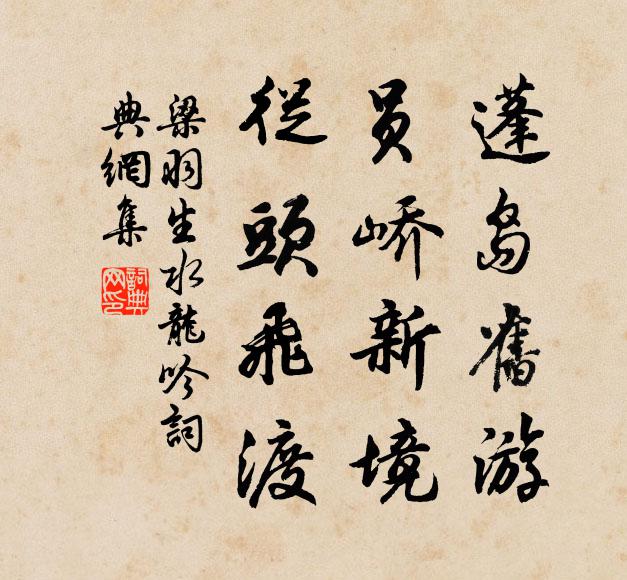 蓬島舊游
员嶠新境
從頭飛渡
梁羽生水龍吟詞
典網集
詞典
网印